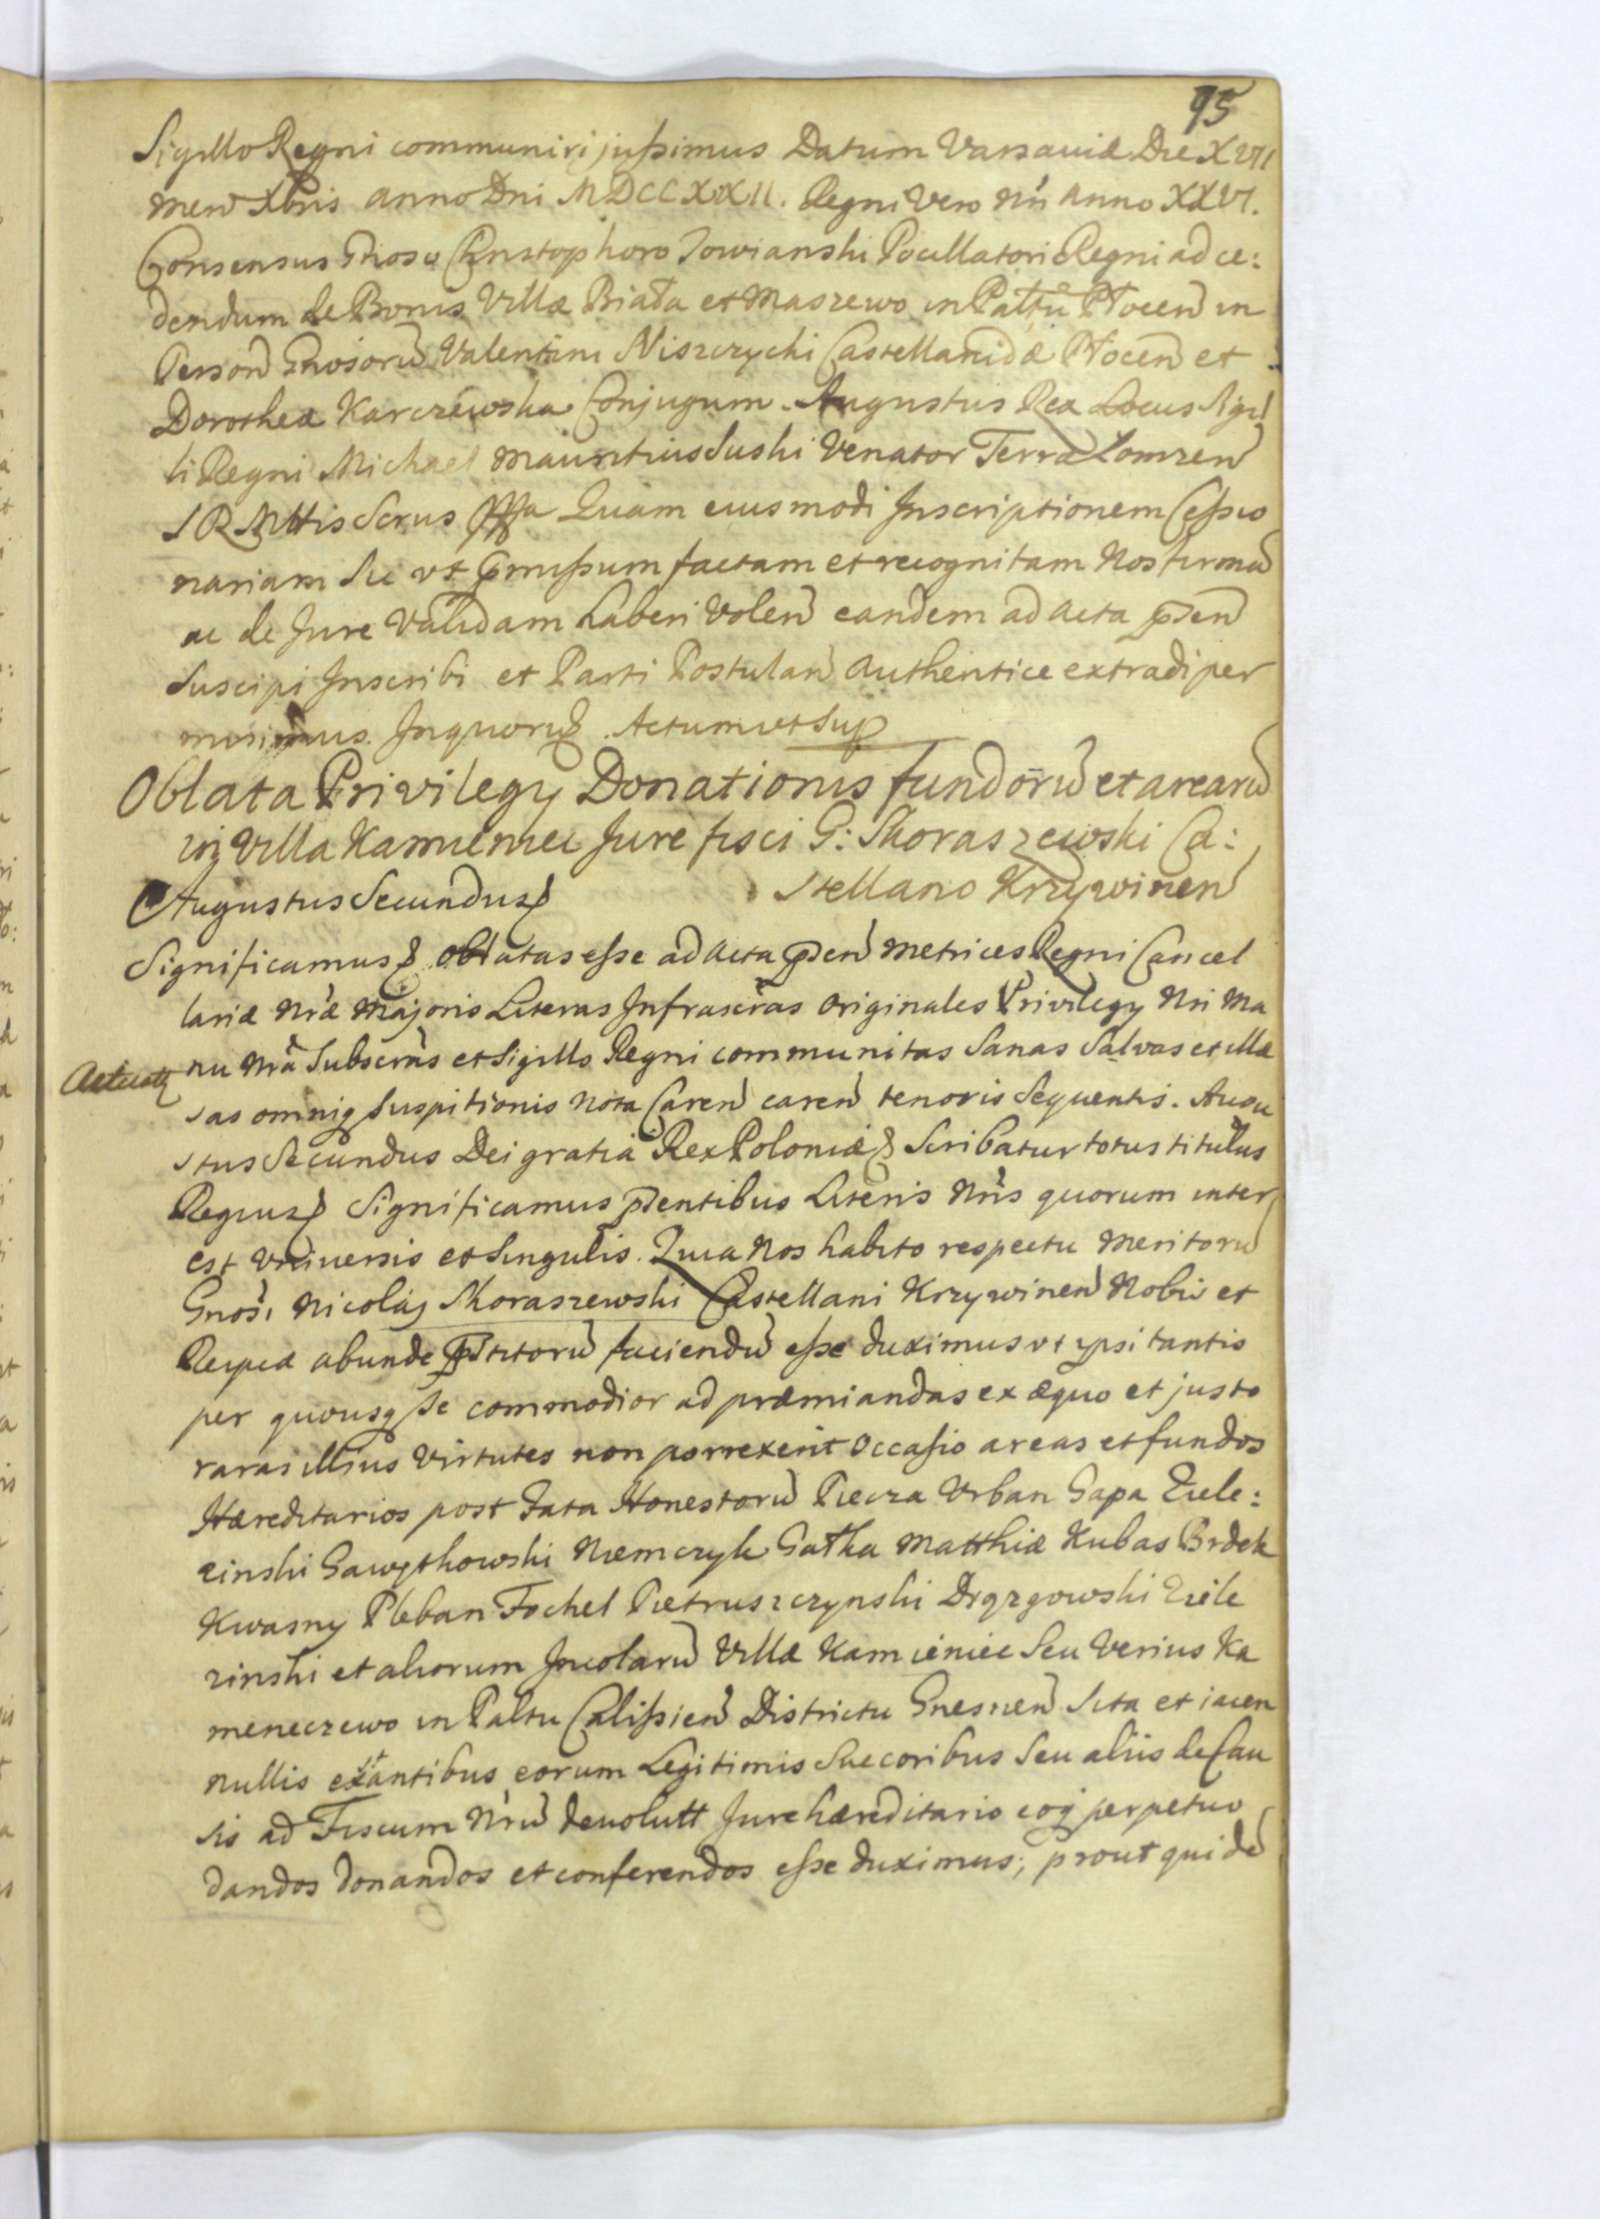 95
Sigillo Regni communiri jussimus Datum Varsaviæ Die XVII
Men Xbris anno Dni MDCCXXII. Regni Vero Nri Anno XXVI.
Consensus Gnoso Christophoro Towianski Pocillatori Regni ad ce:
dendum de Bonis Villæ Biała et Maszewo in Palttu Płocen in
Person Gnosorũ Valentini Niszczycki Castellanidæ Płocen et
Dorotheæ Karczewska Conjugum. Augustus Rex Locus Sigil
li Regni Michael Mauritius Suski Venator Terræ Lomzen
S R Mttis Secrus Mppa Quam eiusmodi Inscriptionem Cessio
nariam Sic vt pmissum factam et recognitam Nos firmã
ac de Jure Validam haberi Volen eandem ad Acta pñen
Suscipi Inscribi et Parti Postulan Authentice extradi per
misimus. In quorũ. Actum ut Sup
Oblata Privilegy Donationis fundorũ et arearũ
in Villa Kamieniec Jure fisci G: Skoraszewski Ca:
stellano Krzywinen
Augustus Secundus
Significamus Oblatas esse ad Acta pñen Metrices Regni Cancel
lariæ Nræ Majoris Literas Infrascras Originales Privilegy Nri Ma
nu Nra Subscras et Sigillo Regni communitas Sanas Salvas et illæ
sas omniq Suspitionis nota Caren caren tenoris Sequentis. Augu
stus Secundus Dei gratia Rex Poloniæ Scribatur totus titulus
Regius Significamus pñentibus Literis Nris quorum inter
est Universis et Singulis. Quia Nos habito respectu Meritorũ
Gnosi Nicolaj Skoraszewski Castellani Krzywinen Nobis et
Reipcæ abunde pstitorũ faciendũ esse duximus vt ipsi tantis
per quousq se commodior ad præmiandas ex æquo et justo
raras illius Virtutes non porrexerit Occasio areas et fundos
Hæreditarios post Fata Honestorũ Piecza Urban Gapa Ziele:
zinski Gawythowski Niemczyk Gałka Matthiæ Kubas Brdek
Kwasny Pleban Fochel Pietruszczynski Drgzgowski Ziele
zinski et aliorum Incolarũ Villæ Kamieniec Seu Verius Ka
menieczewo in Paltu Calissien Districtu Gnesnen Sita et iacen
nullis extantibus eorum Legitimis Succoribus Seu aliis de Cau
sis ad Fiscum Nrũ devolutt Jure hæreditario eoq perpetuo
dandos donandos et conferendos esse duximus; prout quidẽ